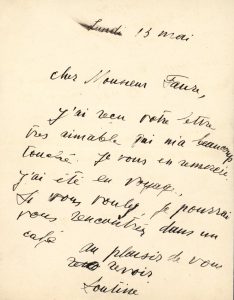 Lundi 13 mai
Cher Monsieur Faure,
j'ai recu votre lettre
tres aimable qui m'a beaucoup
touché. je vous en remercie.
j'ai été en voyage.
Si vous voulez, je pourrai
vous rencontrer dans un
café
au plaisir de vous
revoir
Soutine